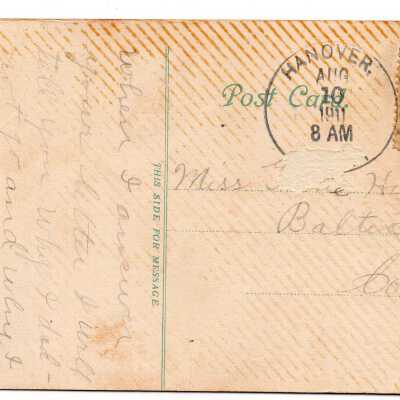 Post Card.
HANOVER,
AUG
10
1911
8 AM
THIS SIDE FOR MESSAGE.
Miss
Balti
Co
When I answer
your letter I will
tell you why I did
not go and why I